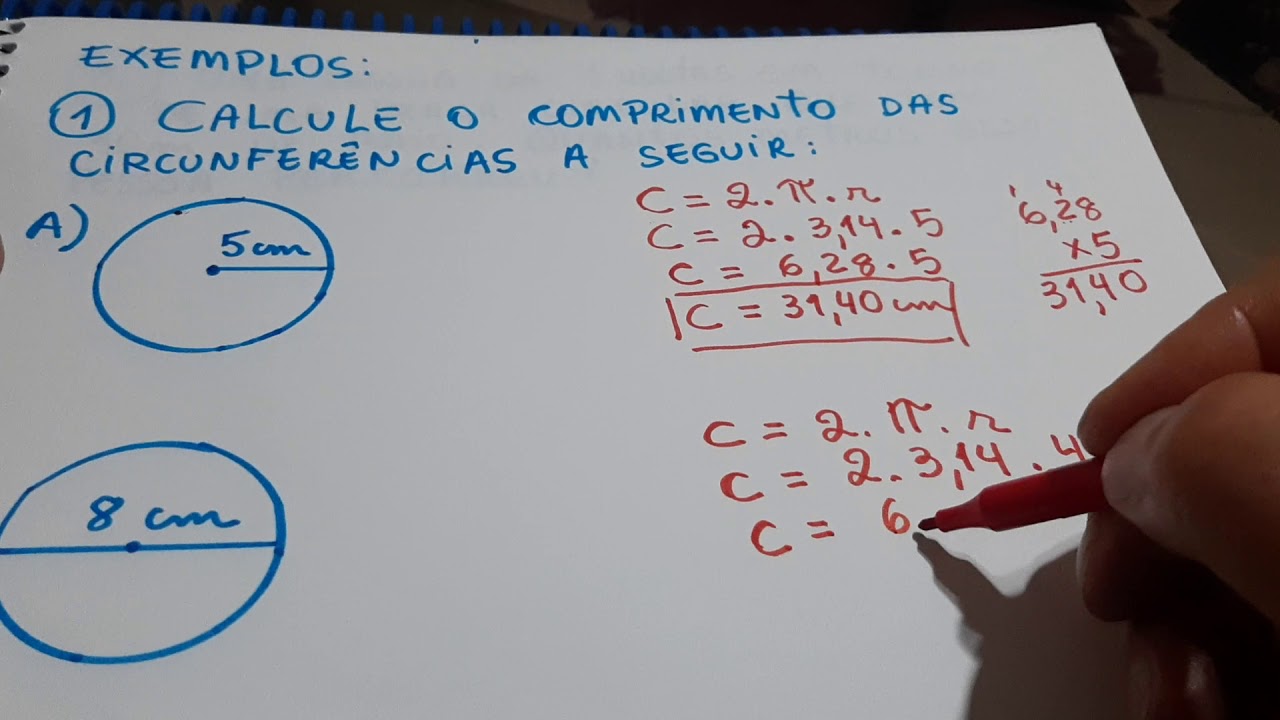 EXEMPLOS:
① CALCULE O COMPRIMENTO DAS
CIRCUNFERÊNCIAS A SEGUIR:
A)
5 cm
C = 2.π.r
C = 2.3,14.5
C = 6,28.5
C = 31,40 cm
1 4
6,28
x5
31,40
8 cm
C = 2.π.r
C = 2.3,14.4
C = 6,